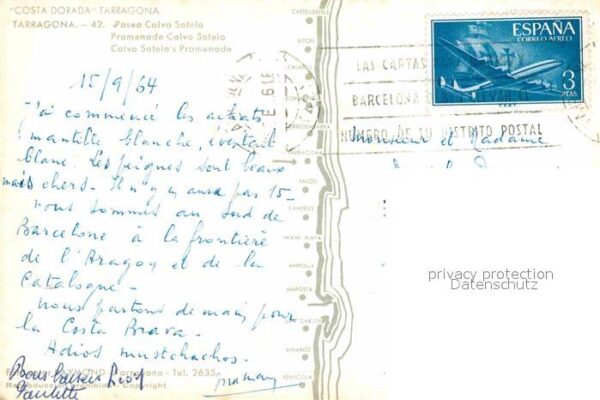 "COSTA DORADA" TARRAGONA
TARRAGONA. — 42. Paseo Calvo Sotelo
Promenade Calvo Sotelo
Calvo Sotelo's Promenade
15/9/64
J'ai commencé les achats
mantille blanche, éventail
blanc. Les peignes sont beaux
mais chers. Il n'y en aura pas 15-
nous sommes au sud de
Barcelone à la frontière
de l'Aragon et de la
Catalogne-
nous partons demain pour
la Costa Brava-
Adios mustchachos.
RAYMOND - Tarragona - Tel. 2635
Reproducción prohibida - Copyright
Bons baisers
Paulette
CASTELLDEFELS
SITGES
SALOU
CAMBRILS
MIAMI PLAYA
AMPOLLA
AMPOSTA
SAN CARLOS
VINAROZ
PEÑISCOLA
LAS CARTAS
BARCELONA
NUMERO DE SU DISTRITO POSTAL
ESPAÑA
CORREO AEREO
3
PTAS
Monsieur et Madame
privacy protection
Datenschutz